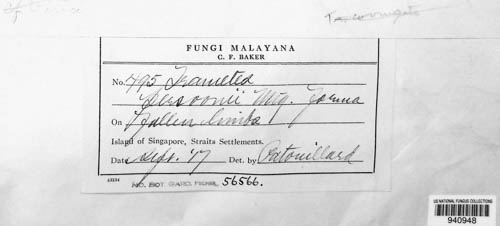 T. corrugata
FUNGI MALAYANA
C. F. BAKER
No. 495 Trametes
Persoonii Mtg. forma
On Fallen limbs
Island of Singapore, Straits Settlements.
Date Sept. '17 Det. by Patouillard
43234
NO. BOT. GARD. FICHES, 56566.
US NATIONAL FUNGUS COLLECTIONS
940948